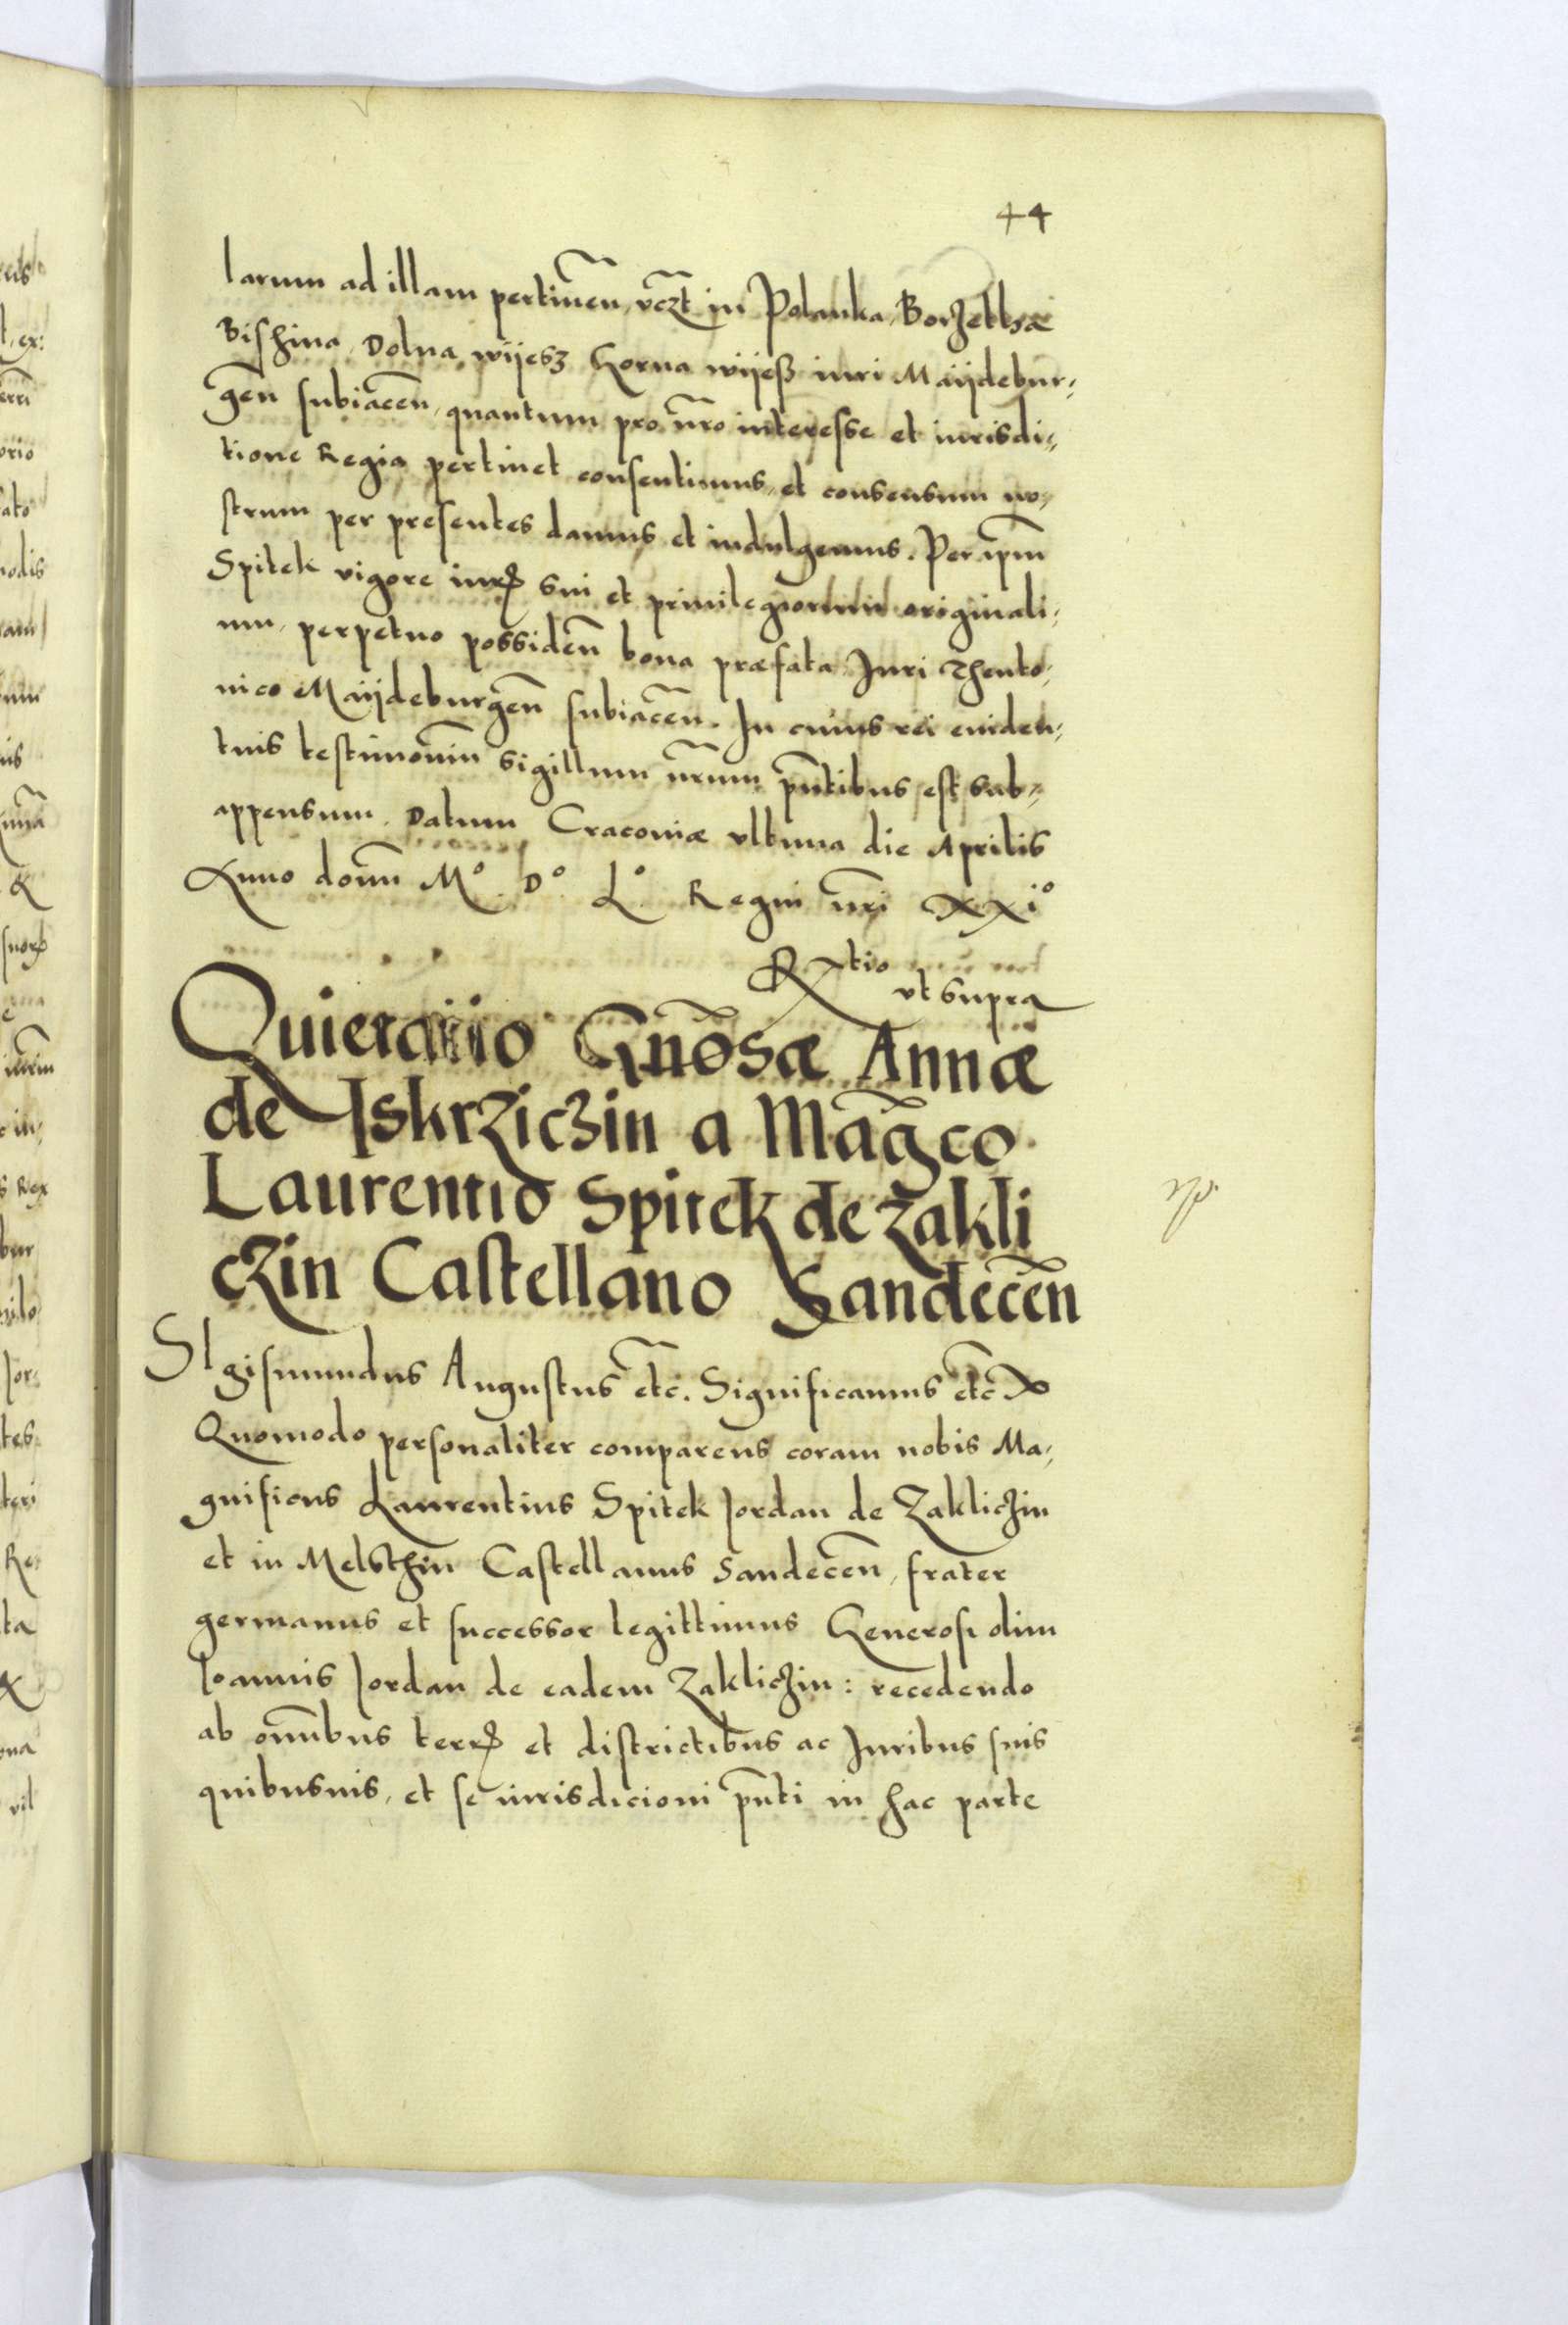 44
larum ad illam pertineñ, vcz̃t in Polanka, Borzetha
Bischina, Dolna wijesz Gorna wijesz iuri Maijdebur-
geñ subiaceñ, quantum pro ñro interesse et iurisdi-
tione Regia pertinet consentimus, et consensum no-
strum per presentes damus et indulgemus. Per ip̃m
Spitek vigore iurꝭ sui et privilegiorum originali-
um, perpetuo possideñ bona præfata Iuri Theuto-
nico Maijdeburgeñ subiaceñ. In cuius rei eviden-
tius testimoniũ sigillum ñrum pñtibus est sub-
appensum. Datum Cracoviæ ultima die Aprilis
Anno domĩ Mº. Dº. Lº. Regni ñri XXiº
Rtio
ut supra
Quietatio Gñosæ Annæ
de Iskrziczin a Mãgco
Laurentio Spitek de Zakli
czin Castellano Sandeceñ
SIgismundus Augustus etc̃. Significamus etc̃
Quomodo personaliter comparens coram nobis Ma-
gnificus Laurentius Spitek Jordan de Zakliczin
et in Melsthin Castellanus Sandeceñ, frater
germanus et successor legittimus Generosi olim
Joannis Jordan de eadem Zakliczin: recedendo
ab om̃ibus terrꝭ et districtibus ac Iuribus suis
quibusvis, et se iurisdicioni pñti in hac parte